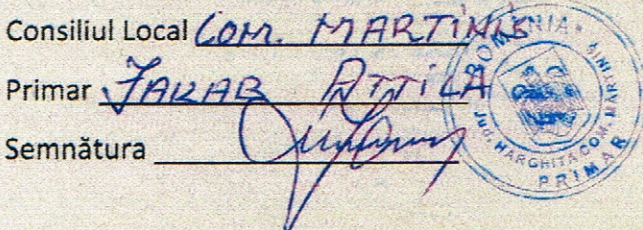 Consiliul Local COM. MARTINIS
Primar JAKAB ATTILA
Semnătura
ROMÂNIA
Jud. HARGHITA COM. MĂRTINIȘ
PRIMAR